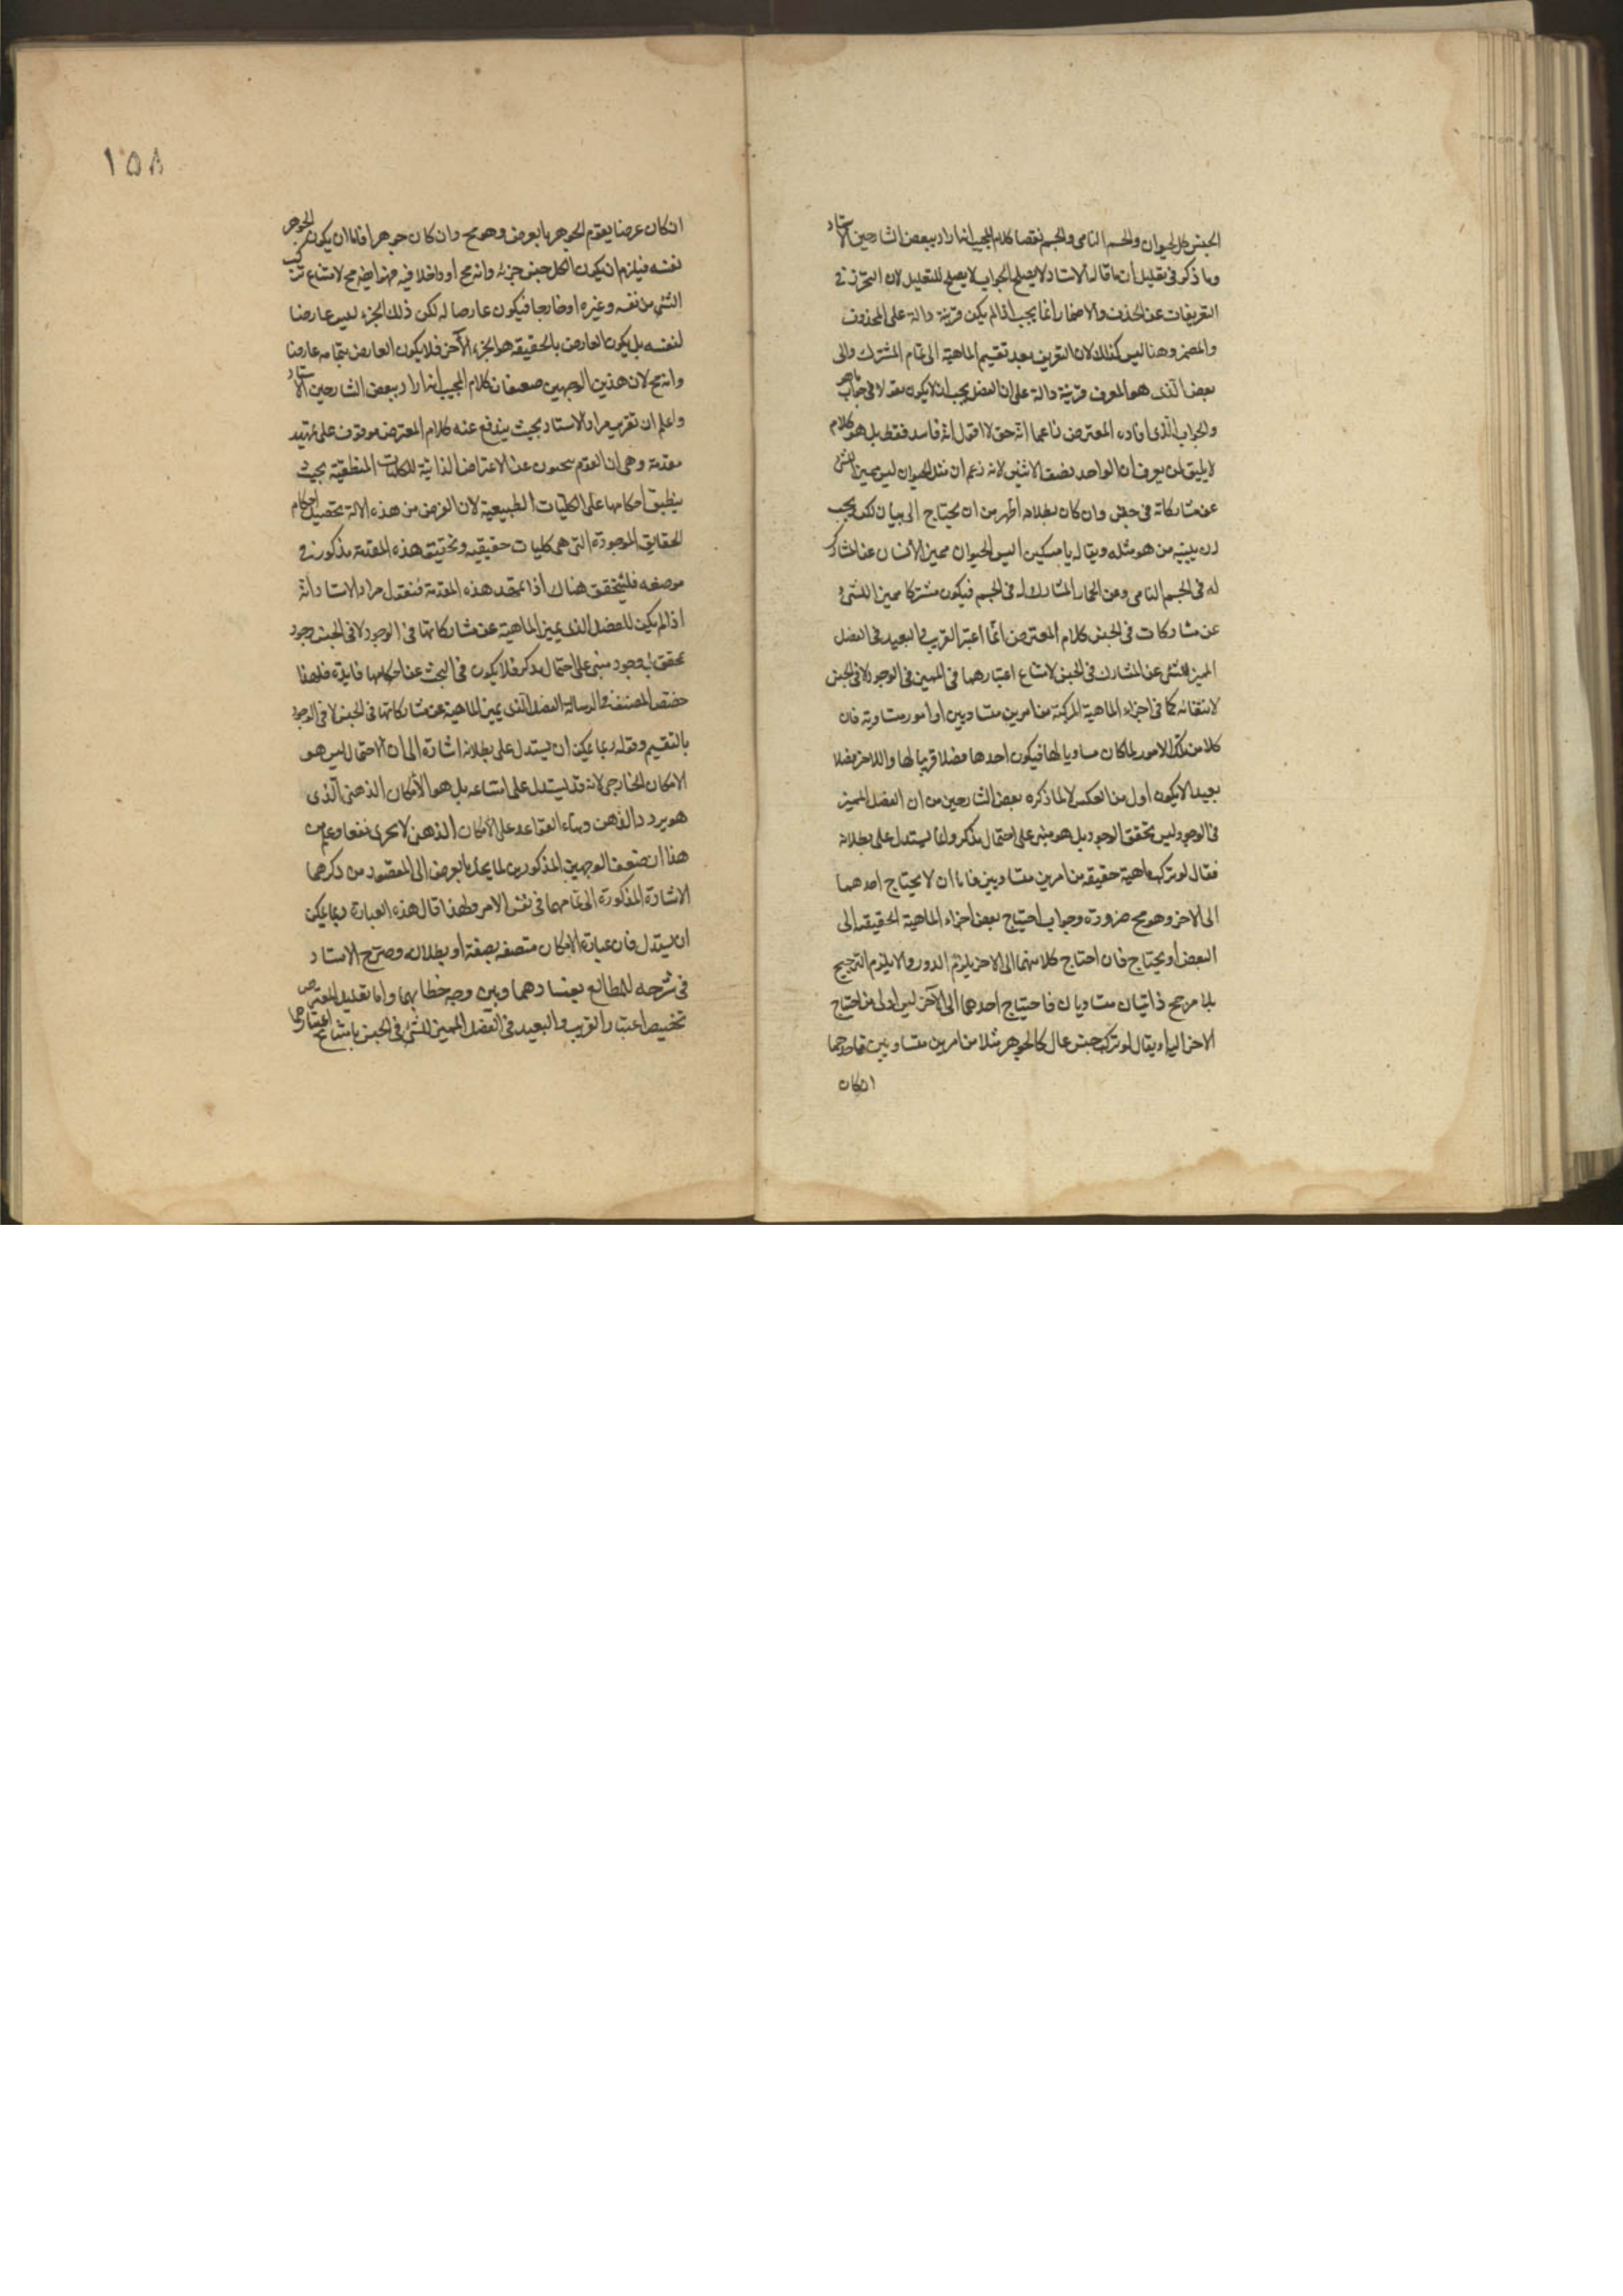 الجنس كالحيوان والجسم النامى والجسم نقصا كلام المجيب انه اراد ببعض الشارحين الاستاد
وما ذكر فى تعليل ان ما قاله الاستاد لا يصلح الجواب لا يصلح للتعليل لان التحرز فى
التعريفات عن الحذف والاضمار انما يجب اذا لم يكن قرينة دالة على المحذوف
والمضمر وهنا ليس كذلك لان التعريف بعد تقسيم الماهية الى تمام المشترك والى
بعض الذى هو المعرف قرينة دالة على ان الفصل يجب ان لا يكون مقولا فى جواب ما هو
والجواب الذى افاده المعترض زاعما انه حق لا اقول انه فاسد فقط بل هو كلام
لا يليق لمن يعرف ان الواحد نصف الاثنين لانه زعم ان مثل الحيوان ليس مميز الشئ
عن مشاركاته فى جنس وان كان بطلانه اظهر من ان يحتاج الى بيان لكن يجب
ان يبينه من هو مثله ويقال يا مسكين اليس الحيوان مميز الانسان عن المشارك
له فى الجسم النامى وعن الحمار المشارك له فى الجسم فيكون مشتركا مميزا للشئ
عن مشاركات فى الجنس كلام المعترض انما اعتبر القريب والبعيد فى الفصل
المميز للشئ عن المشارك فى الجنس لامتناع اعتبارهما فى المميز فى الوجود لا فى الجنس
لانتفائه كما فى اجزاء الماهية المركبة من امرين متساويين او امور متساوية فان
كلا من تلك الامور لما كان مساويا لها فيكون احدها فصلا قريبا لها والاخر فصلا
بعيدا لا يكون اولى من العكس لا لما ذكره بعض الشارحين من ان الفصل المميز
فى الوجود ليس محقق الوجود بل هو مبنى على احتمال مذكر وانما يستدل على بطلانه
فقال لو تركب ماهية حقيقية من امرين متساويين فاما ان لا يحتاج احدهما
الى الاخر وهو مح ضرورة وجواب احتياج بعض اجزاء الماهية الحقيقية الى
البعض او يحتاج فان احتاج كلا منهما الى الاخر يلزم الدور والا يلزم الترجيح
بلا مرجح ذاتيان متساويان فاحتياج احدهما الى الآخر ليس اولى من احتياج
الاخر اليه او يقال لو تركب جنس عال كالجوهر مثلا من امرين متساويين فاحدهما
ان كان
١٥٨
ان كان عرضا يقوم الجوهر بالعرض وهو مح وان كان جوهرا فاما ان يكون الجوهر
نفسه فيلزم ان يكون الكل جنس جزئه وانه مح او داخلا فيه فهو ايضا مح لامتناع تركب
الشئ من نفسه وغيره او خارجا فيكون عارضا له لكن ذلك الجزء ليس عارضا
لنفسه بل يكون العارض بالحقيقة هو الجزء الآخر فلا يكون العارض بتمامه عارضا
وانه مح لان هذين الوجهين ضعيفان كلام المجيب انه اراد ببعض الشارحين الاستاد
واعلم ان تقرير مراد الاستاد بحيث يندفع عنه كلام المعترض موقوف على تمهيد
مقدمة وهى ان القوم يبحثون عن الاعراض الذاتية للكليات المنطقية بحيث
ينطبق احكامها على الكليات الطبيعية لان الغرض من هذه الالة تحصيل احكام
الحقايق الموجودة التى هى كليات حقيقية وتحقيق هذه المقدمة مذكور فى
موضعه فليتحقق هناك اذا تمهد هذه المقدمة فنقول مراد الاستاد انه
اذا لم يكن للفصل الذى يميز الماهية عن مشاركاتها فى الوجود لا فى الجنس وجود
محقق بل وجود مبنى على احتمال مذكر فلا يكون فى البحث عن احكامها فايدة فلهذا
خصص المصنف فى الرسالة الفصل الذى يميز الماهية عن مشاركاتها فى الجنس لا فى الوجود
بالتقسيم وقوله ربما يمكن ان يستدل على بطلانه اشارة الى ان الاحتمال ليس هو
الامكان الخارجى لانه قد يستدل على امتناعه بل هو الامكان الذهنى الذى
هو يردد الذهن وبناء القواعد على الامكان الذهنى لا يجرى نفعا وعلم من
هذا ان ضعف الوجهين المذكورين لما يحل بالعرض الى المقصود من ذكرهما
الاشارة المذكورة الى تمامهما فى نفس الامر ولهذا قال هذه العبارة ربما يمكن
ان يستدل فان عبارة الامكان متصفه بصفة او بطلانه وصرح الاستاد
فى شرحه للمطالع بفسادهما وبين وجه خطا بهما واما تعليل المعترض
تخصيص اعتبار القريب والبعيد فى الفصل المميز للشئ فى الجنس بامتناع اعتبارهما